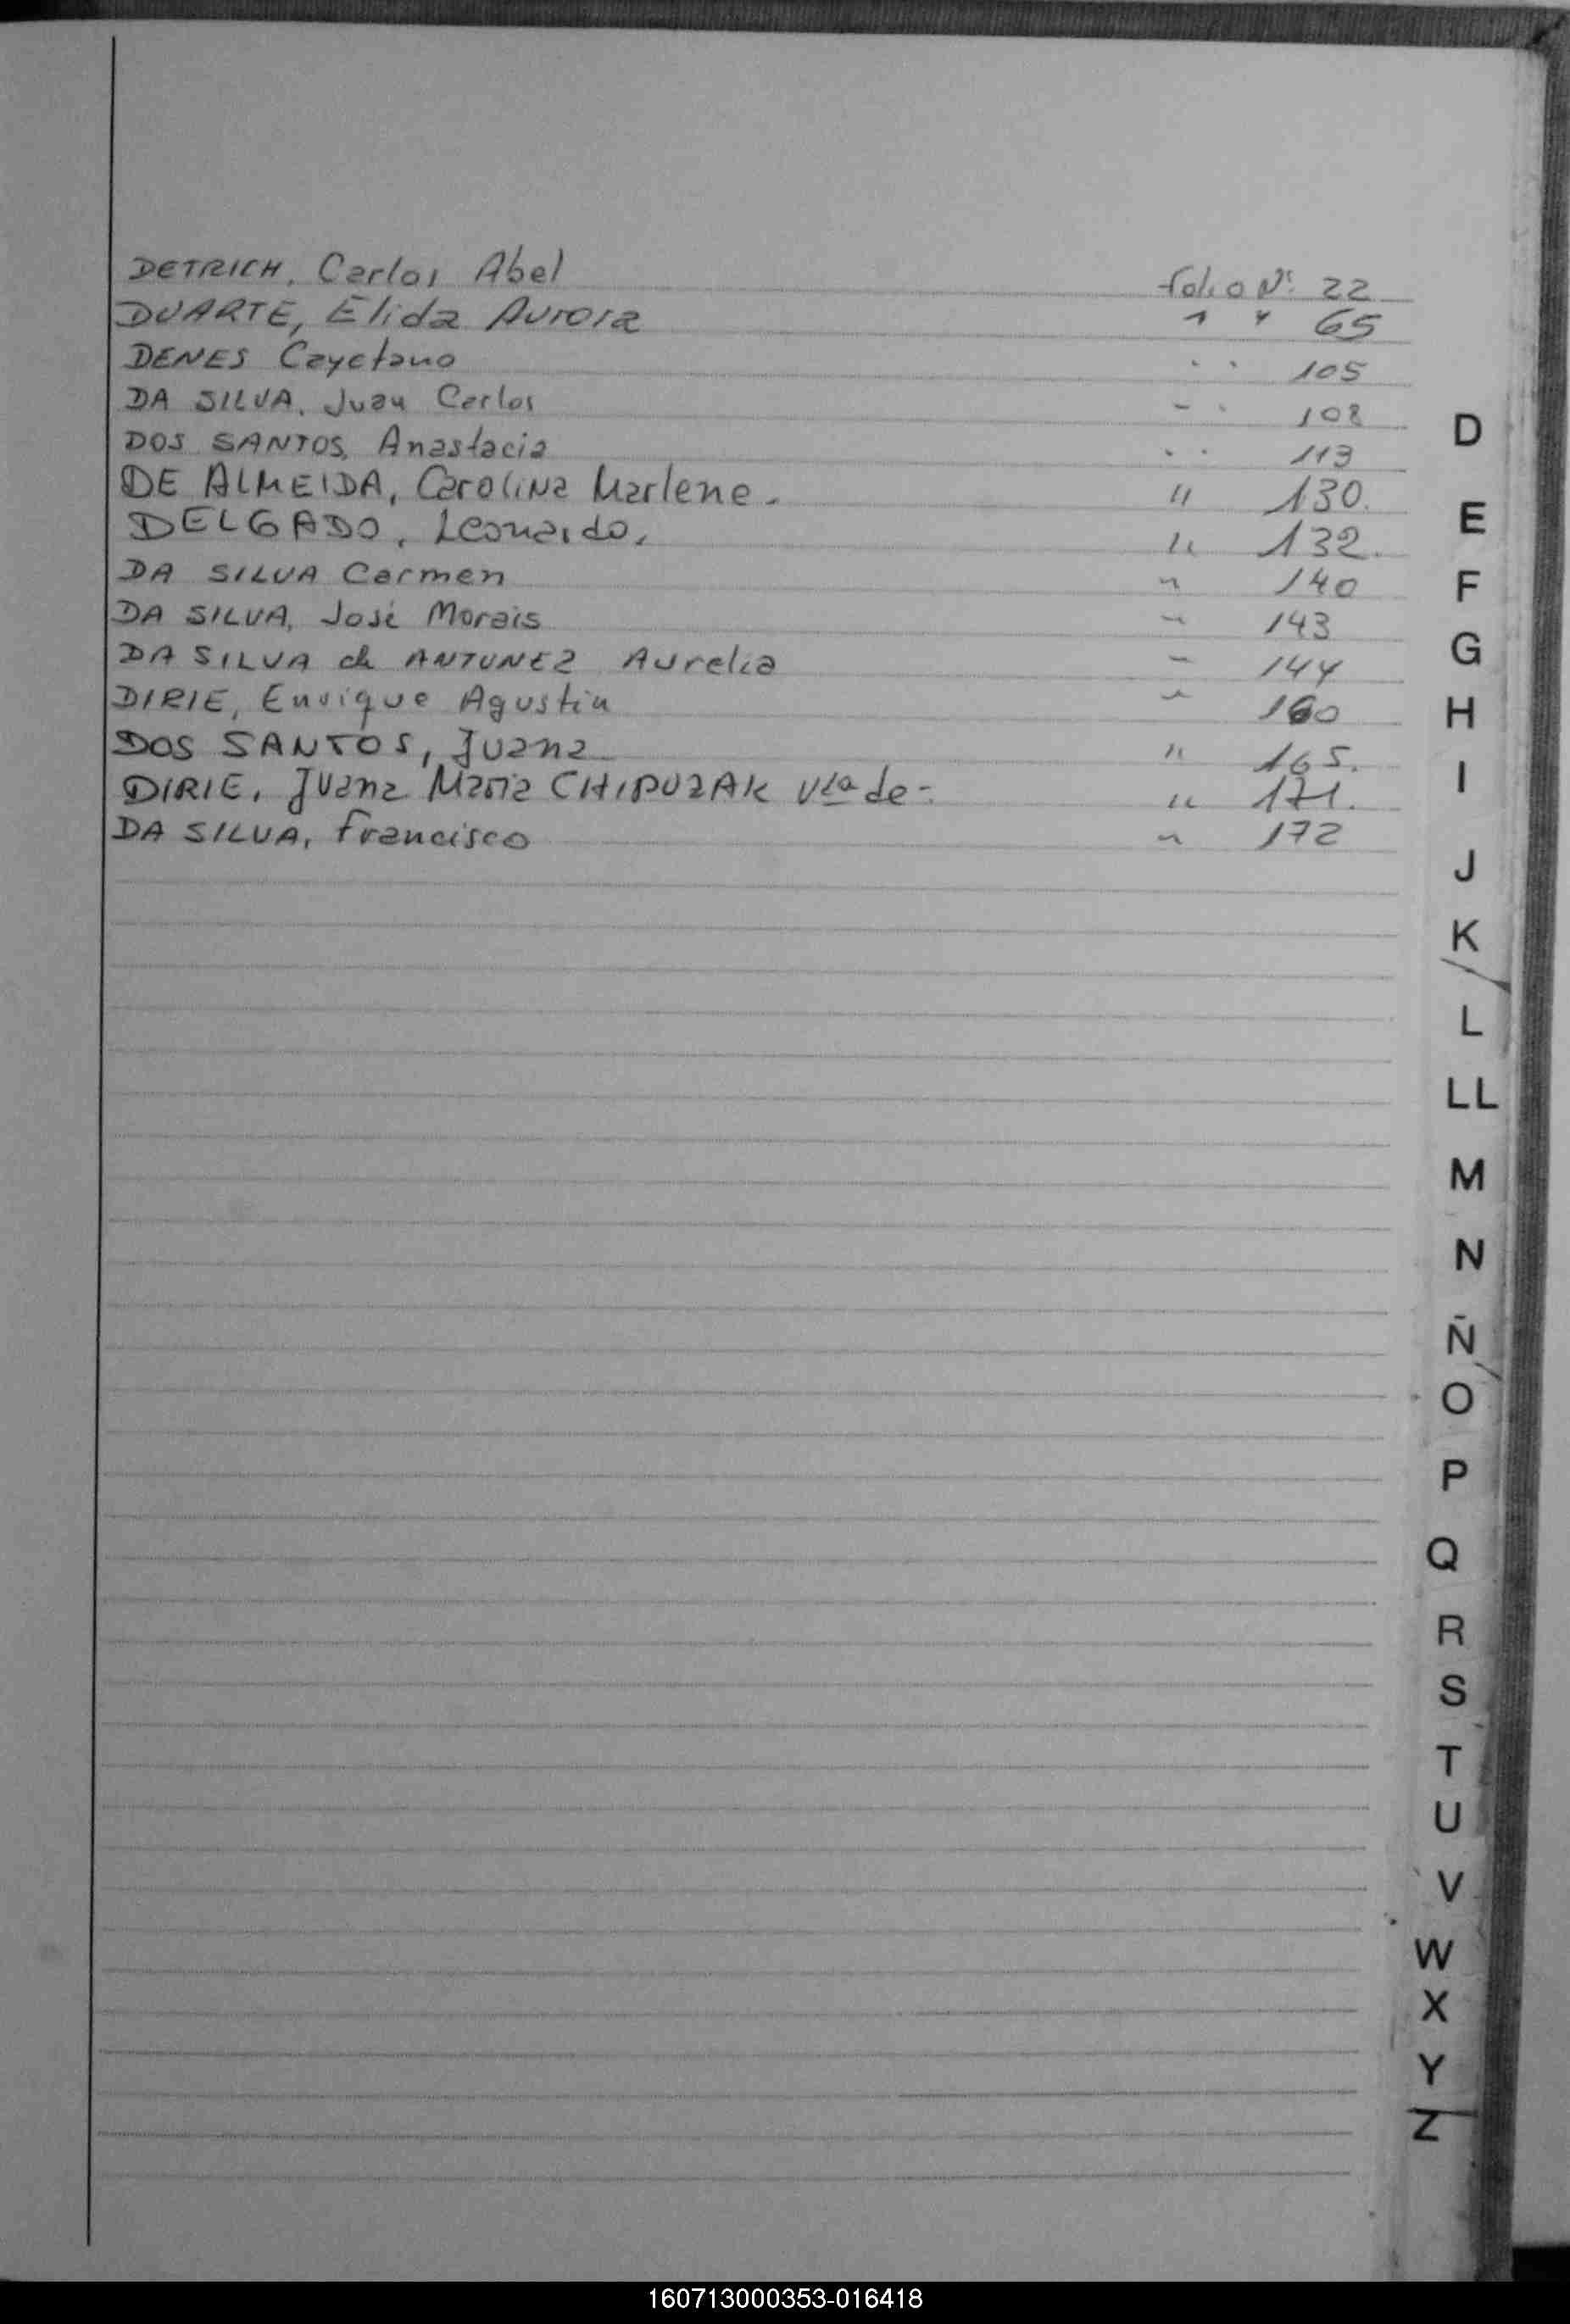 DETRICH, Carlos Abel Folio Nº 22
DUARTE, Elida Aurora " " 65
DENES Cayetano " " 105
DA SILVA, Juan Carlos " " 108
DOS SANTOS, Anastacia " " 113
DE ALMEIDA, Carolina Marlene. " 130.
DELGADO, Leonardo. " 132.
DA SILVA Carmen " 140
DA SILVA, José Morais " 143
DA SILVA de ANTUNEZ Aurelia " 144
DIRIE, Enrique Agustin " 160
DOS SANTOS, Juana " 165.
DIRIE, Juana Maria CHIPUZAK Vda de- " 171.
DA SILVA, Francisco " 172
D
E
F
G
H
I
J
K
L
LL
M
N
Ñ
O
P
Q
R
S
T
U
V
W
X
Y
Z
160713000353-016418